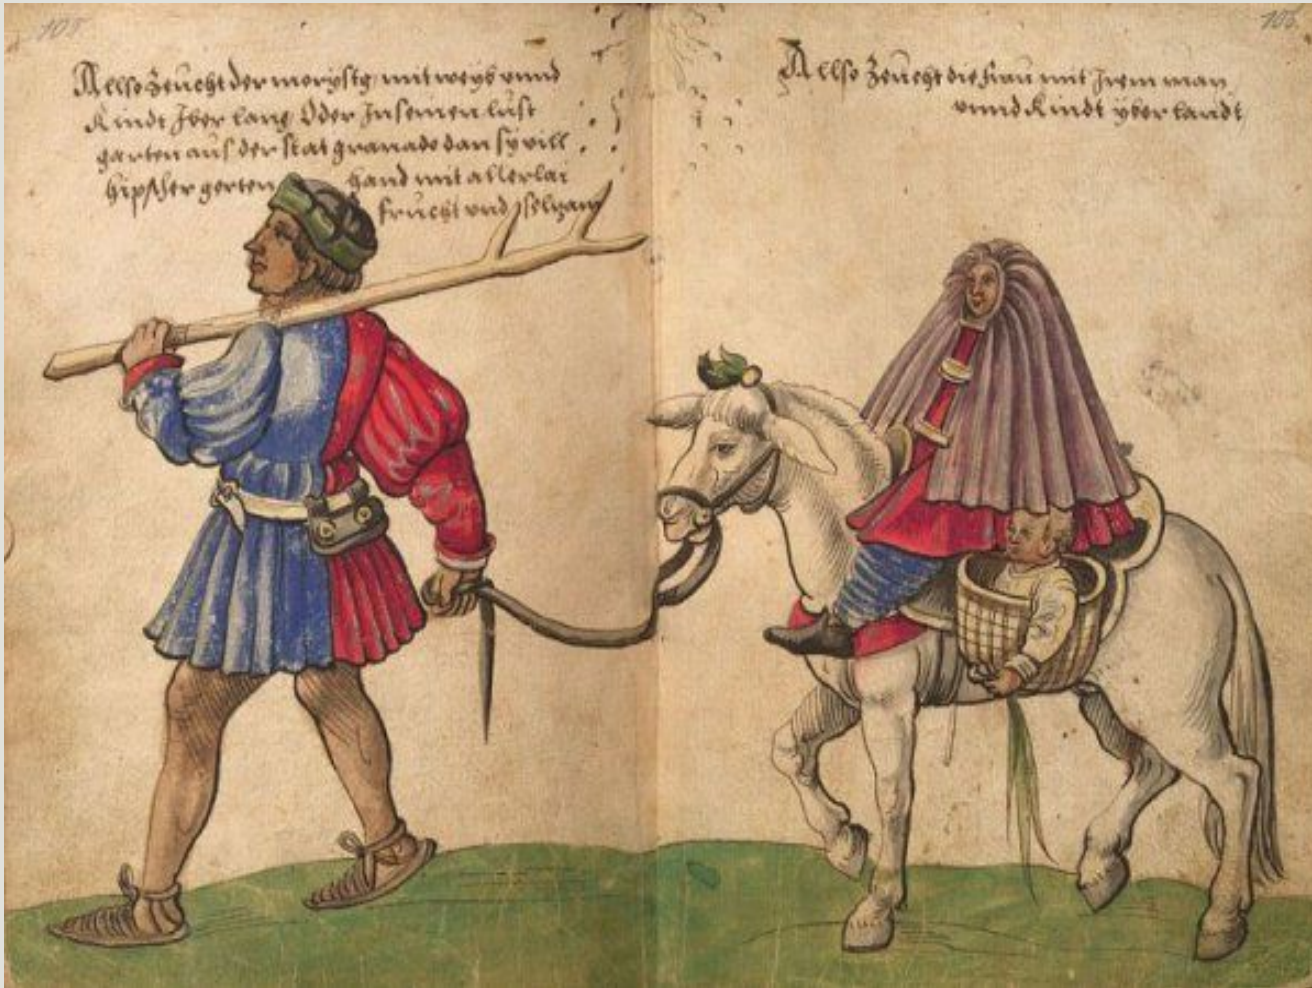 105
Allso Zeucht der morystg mit weyb vnnd
Kindt Iber lanng Oder In seinen lust
garten aus der stat granado dan sy vill
hipscher gerten hand mit allerlai
frucht vnd selzam
106
Allso Zeucht die frau mit Irem man
vnnd Kindt yber landt